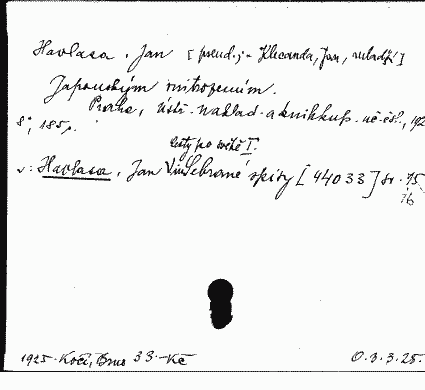 Havlasa, Jan [pseud.j- Klecanda, Jan, mladší]
Japonským mitrozemím.
Praha, Ústř. naklad. a knihkup. uč. čsl., 192
8°, 185 p.
Cesty po světě I.
v: Havlasa, Jan Sebrané spisy [44033] sv. 75
76
1925 Kočí, Brno 33.- Kč
O.3.3.25.